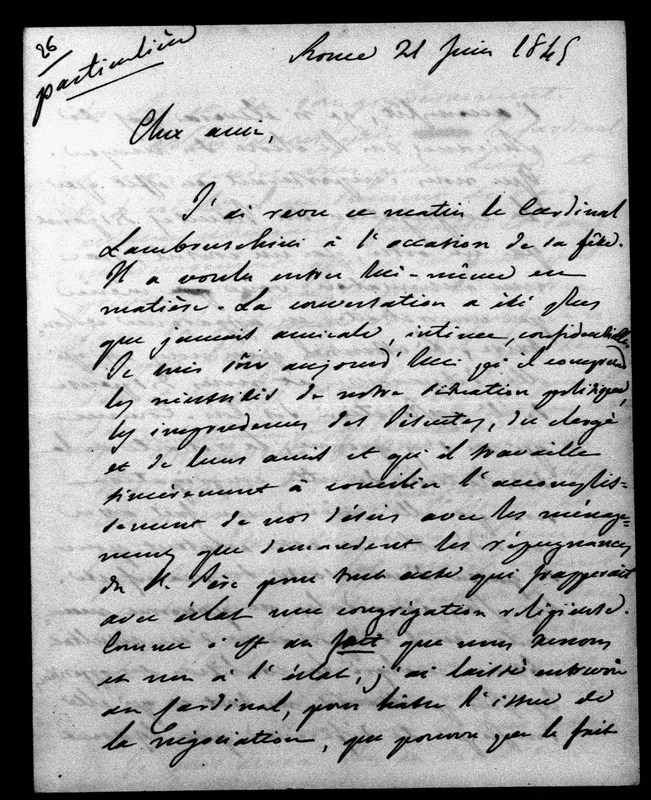 26
particulière
Rome 21 Juin 1845
Cher ami,
J'ai revu ce matin le Cardinal
Lambruschini à l'occasion de sa fête.
Il a voulu entrer lui-même en
matière. La conversation a été plus
que jamais amicale, intime, confidentielle.
Je suis sûr aujourd'hui qu'il comprend
les nécessités de notre situation politique,
les imprudences des Jésuites, du clergé
et de leurs amis et qu'il travaille
sincèrement à concilier l'accomplis-
sement de nos désirs avec les ménage-
mens que demandent les répugnances
du St. Père pour tout acte qui frapperait
avec éclat une congrégation religieuse.
Comme c'est au fait que nous tenons
et non à l'éclat, j'ai laissé entrevoir
au Cardinal, pour hâter l'issue de
la négociation, que pourvu que le fait